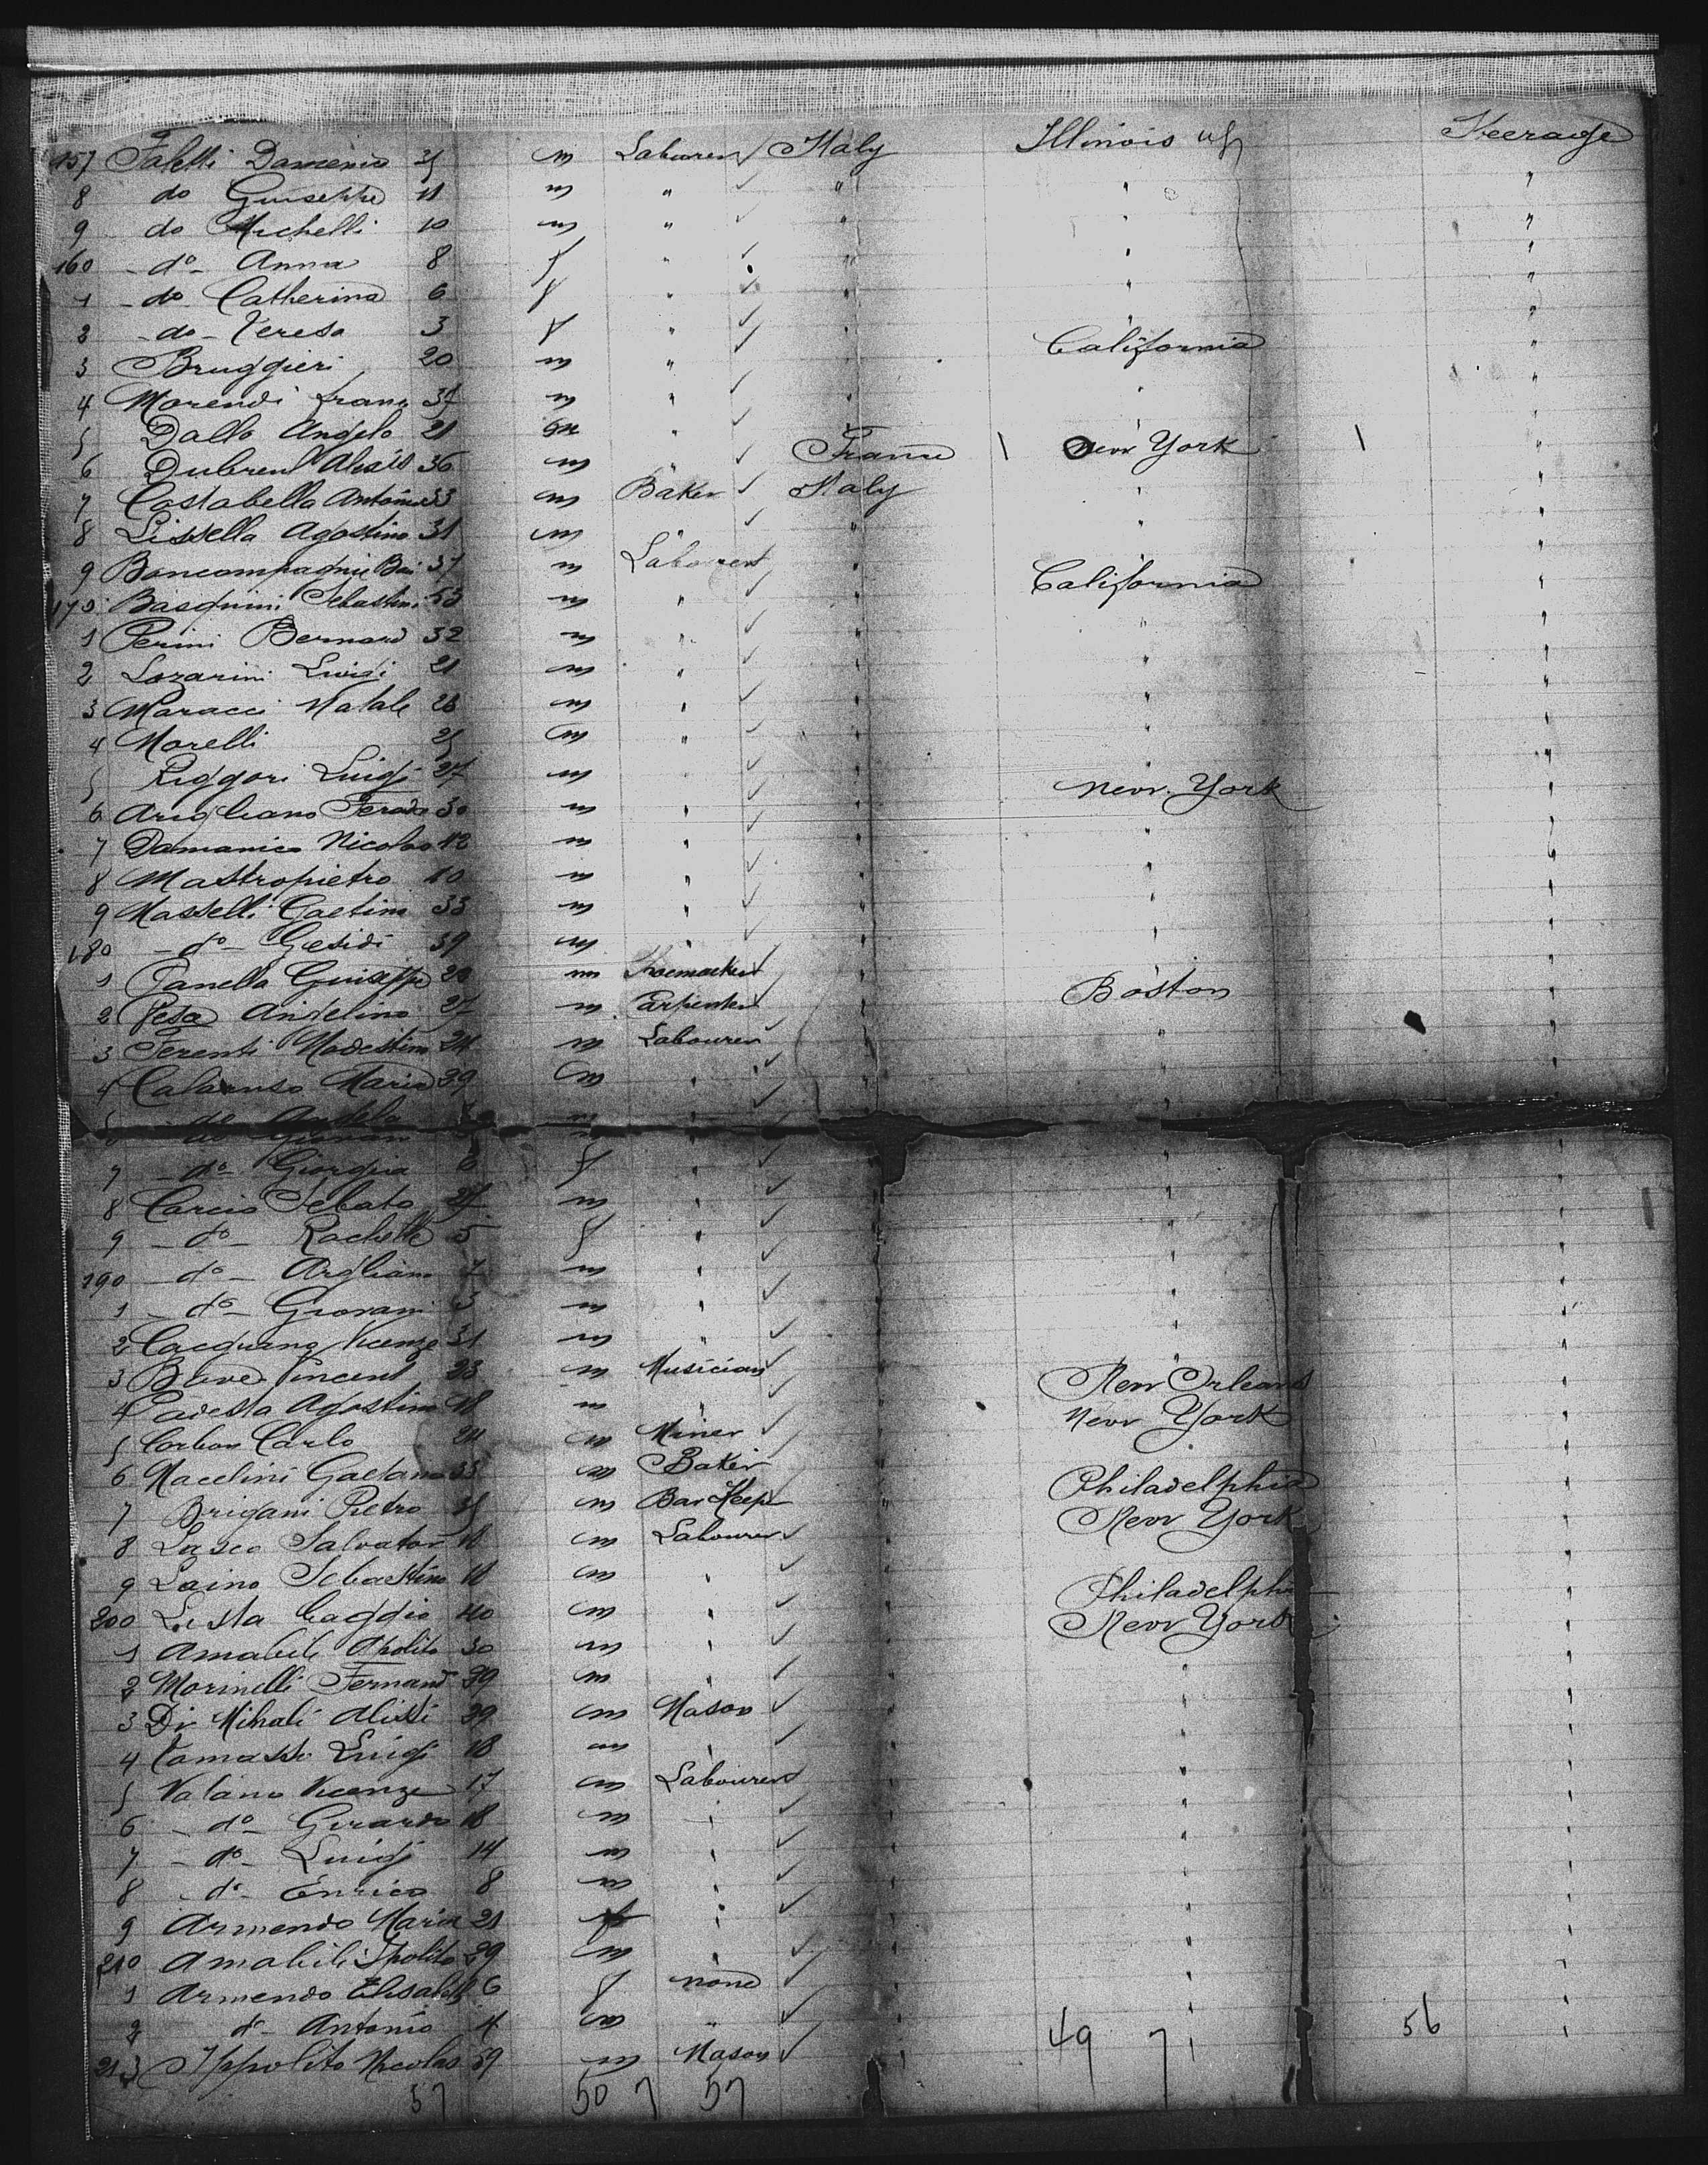 157 Faletti Domenico 35 m Labourer Italy Illinois Steerage
8 do Guiseppe 11 m " " " "
9 do Michelli 10 m " " " "
160 - do - Anna 8 f " " " "
1 - do Catherina 6 f " " " "
2 - do - Teresa 3 f " " " "
3 Bruggieri 20 m " " California "
4 Morendi Franc 37 m " " " "
5 Dallo Angelo 21 m " " " "
6 Dubreul Alexis 36 m " France New York "
7 Costabello Antonio 33 m Baker Italy " "
8 Lissella Agostino 31 m " " " "
9 Boncompagnie 37 m Labourer " "
170 Basquini Sebastin 53 m " " California "
1 Perini Bernard 32 m " " " "
2 Lorarini Luigi 21 m " " " "
3 Maracci Natale 28 m " " " "
4 Morelli 25 m " " " "
5 Riggori Luigi 27 m " " " "
6 Arigliano 30 m " " New York "
7 Damanico Nicolao 42 m " " " "
8 Mastropietro 40 m " " " "
9 Masselli Gaetino 33 m " " " "
180 - do - 39 m " " " "
1 Panella Guiseppe 28 m Shoemaker " "
2 Pesa Angelino 27 m Carpenter " Boston "
3 Ferenti Modestino 24 m Labourer " " "
4 Calaruso Maria 39 m " " " "
do Angelo m "
do m
7 - do - Giorgia 6 f " " " "
8 Carcio Sebato 27 m " " " "
9 - do - Rachelle 5 f " " " "
190 - do - 7 m " " " "
1 - do - Giovani 3 m " " " "
2 Cacquano Vicenzo 31 m " " " "
3 Vincent 23 m Musician " New Orleans "
4 Padesta Agostino 18 m " " New York "
5 Corbon Carlo 24 m Miner " "
6 Macelini Gaetano 33 m Baker " Philadelphia "
7 Brigani Pietro 35 m Bar Keep " New York "
8 Lasco Salvator 18 m Labourer " "
9 Laino Sebastino 18 m " " Philadelphi "
200 Lista Gaggio 40 m " " New York "
1 Amabile Apolito 30 m " " " "
2 Morinelli Fernand 29 m " " " "
3 Di Mihali Alissi 29 m Mason " " "
4 Tomasso Luigi 18 m " " " "
5 Valano Vicenze 17 m Labourer " " "
6 - do - Girardo 18 m " " " "
7 - do - Luigi 14 m " " " "
8 - do - Enrico 8 m " " " "
9 Armendo Maria 21 f " " " "
210 Amabili Ipolito 29 m " " " "
1 Armendo Elisabett 6 f none " " "
2 do - Antonio 4 m " " " "
213 Ippolito Nicolas 39 m Mason " 49 7 56 "
57 50 7 57